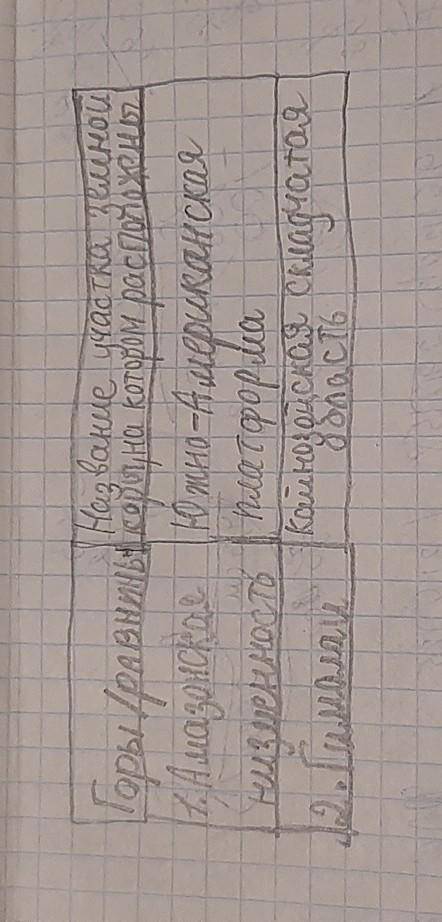 Горы/равнины
Название участка земной
коры, на котором расположены
1. Амазонская
низменность
Южно-Американская
платформа
2. Гималаи
Кайнозойская складчатая
область